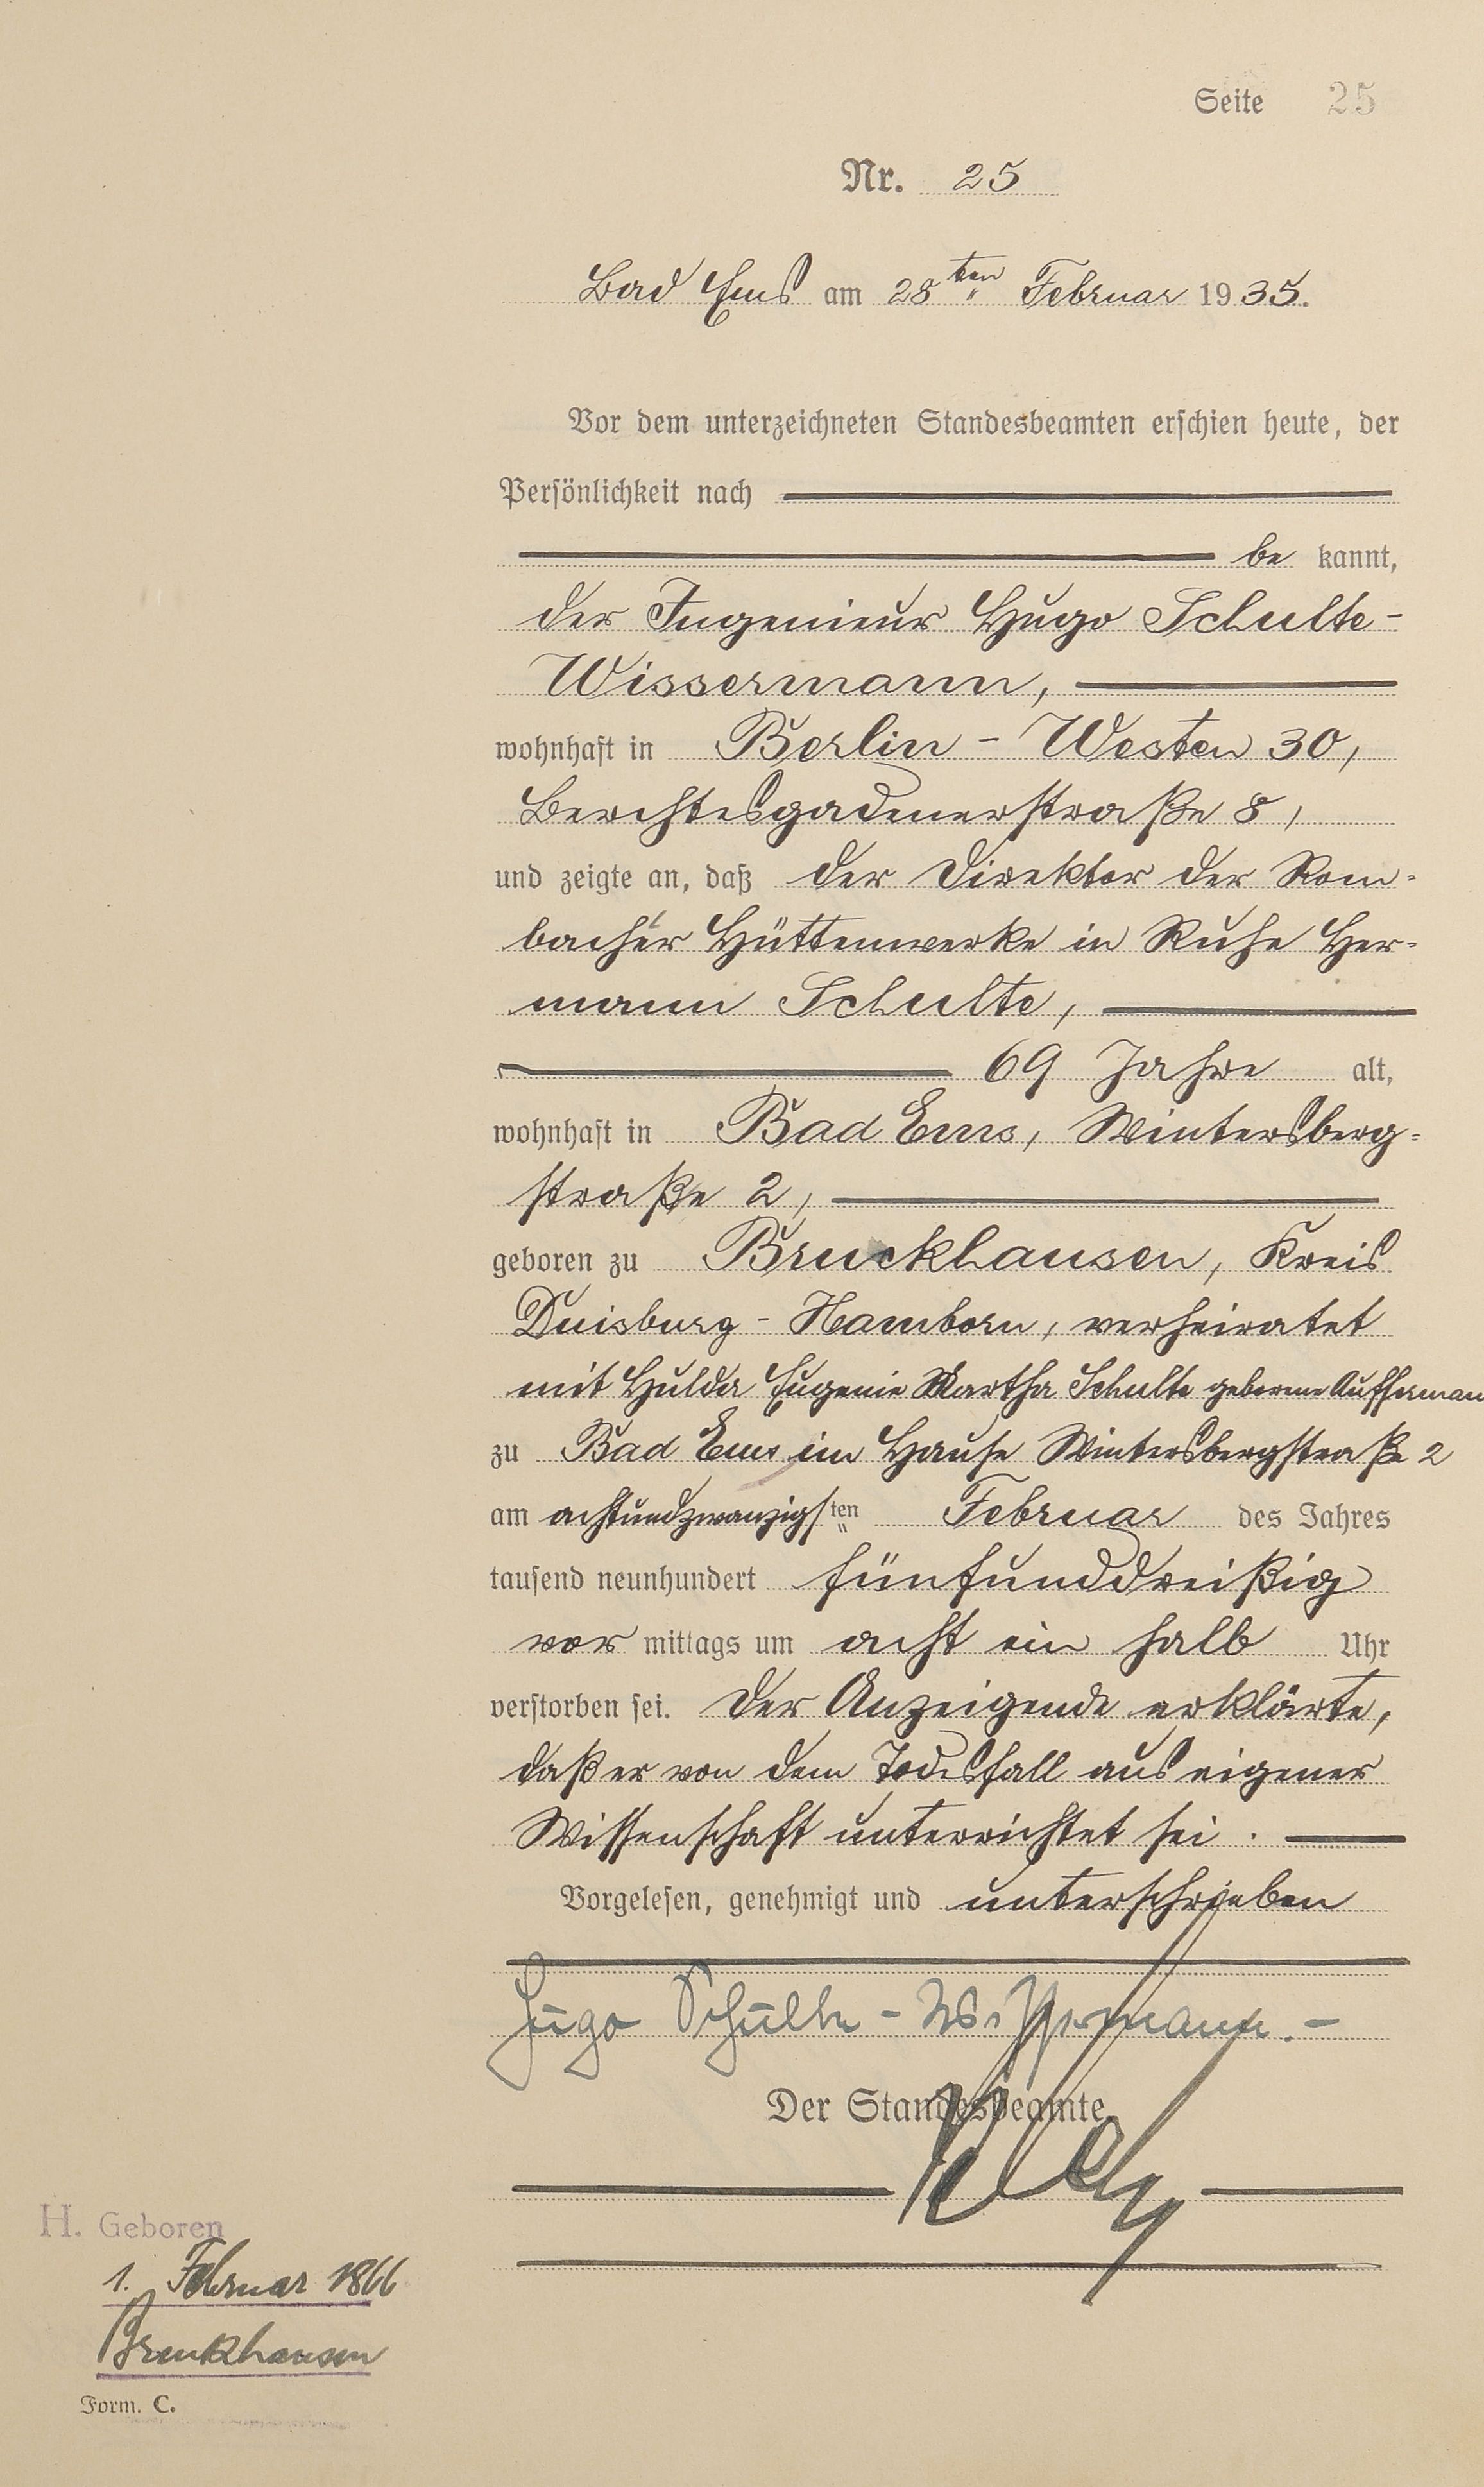 Seite 25
Nr. 25
Bad Ems am 28ten Februar 1935.
Vor dem unterzeichneten Standesbeamten erschien heute, der
Persönlichkeit nach
be kannt,
der Ingenieur Hugo Schulte-
Wissermann,
wohnhaft in Berlin - Westen 30,
Berchtesgadenerstraße 8,
und zeigte an, daß der Direktor der Rom-
bacher Hüttenwerke in Ruhe Her-
mann Schulte,
69 Jahre alt,
wohnhaft in Bad Ems, Wintersberg-
straße 2,
geboren zu Bruckhausen, Kreis
Duisburg - Hamborn, verheiratet
mit Hulda Eugenie Martha Schulte geborene Auffermann
zu Bad Ems im Hause Wintersbergstraße 2
am achtundzwanzigsten Februar des Jahres
tausend neunhundert fünfunddreißig
vor mittags um acht ein halb Uhr
verstorben sei. Der Anzeigende erklärte,
daß er von dem Todesfall aus eigener
Wissenschaft unterrichtet sei.
Vorgelesen, genehmigt und unterschrieben
Hugo Schulte-Wissermann.-
Der Standesbeamte
H. Geboren
1. Februar 1866
Bruckhausen
Form. C.